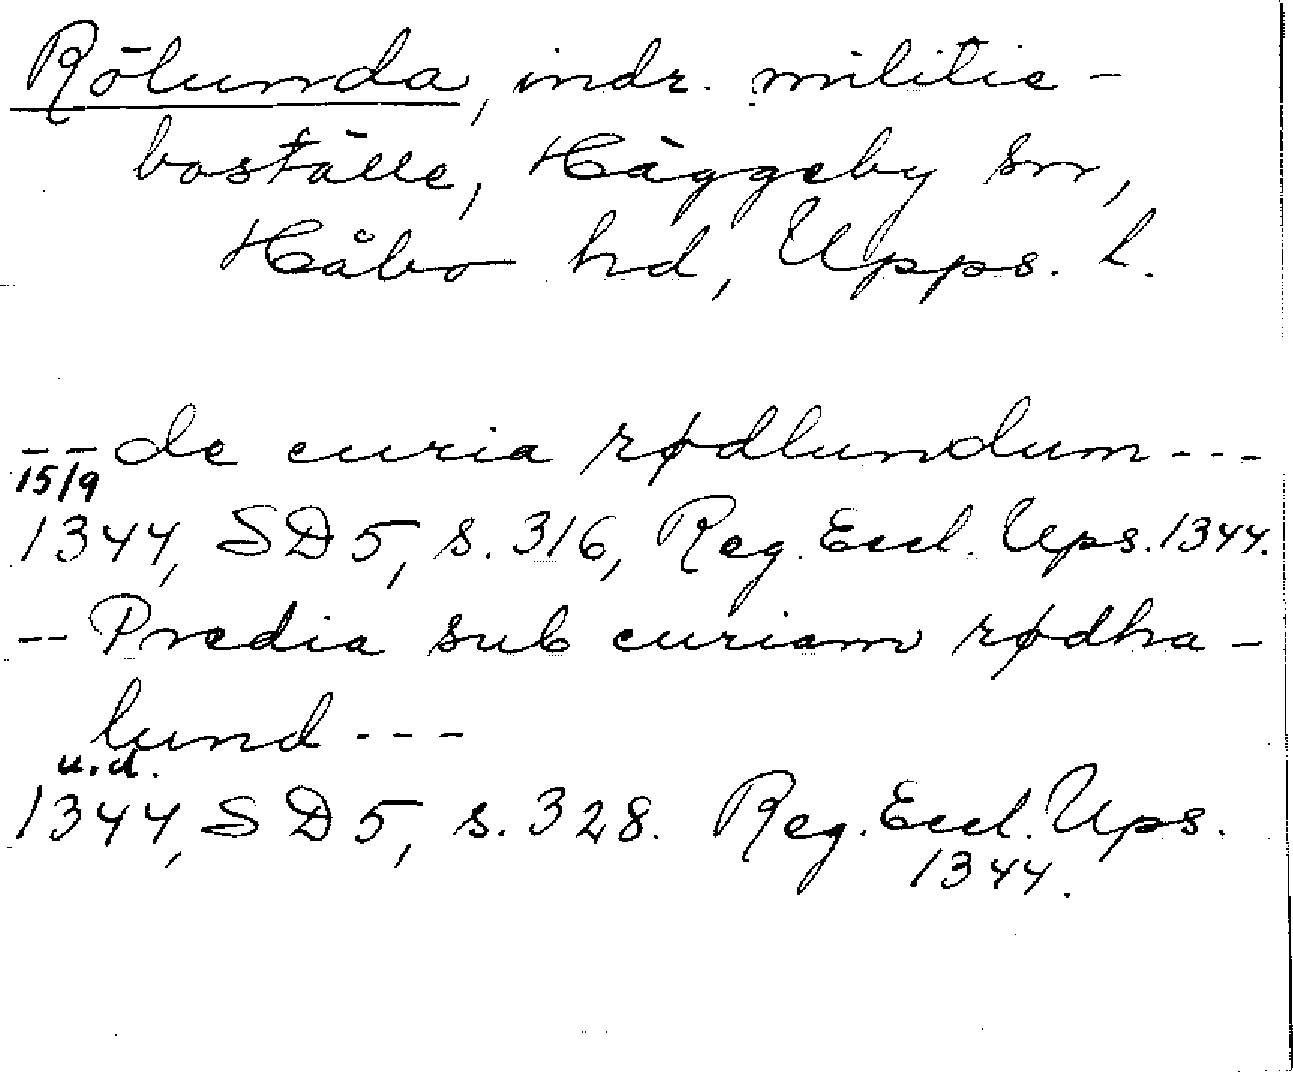 Rölunda, indr. militie-
boställe, Häggeby sn,
Håbo hd, Upps. l.
-- de curia rødlundum ---
15/9
1344, SD 5, s. 316, Reg. Eccl. Ups. 1344.
-- Prædia sub curiam rødha-
lund ---
u.d.
1344, SD 5, s. 328. Reg. Eccl. Ups.
1344.